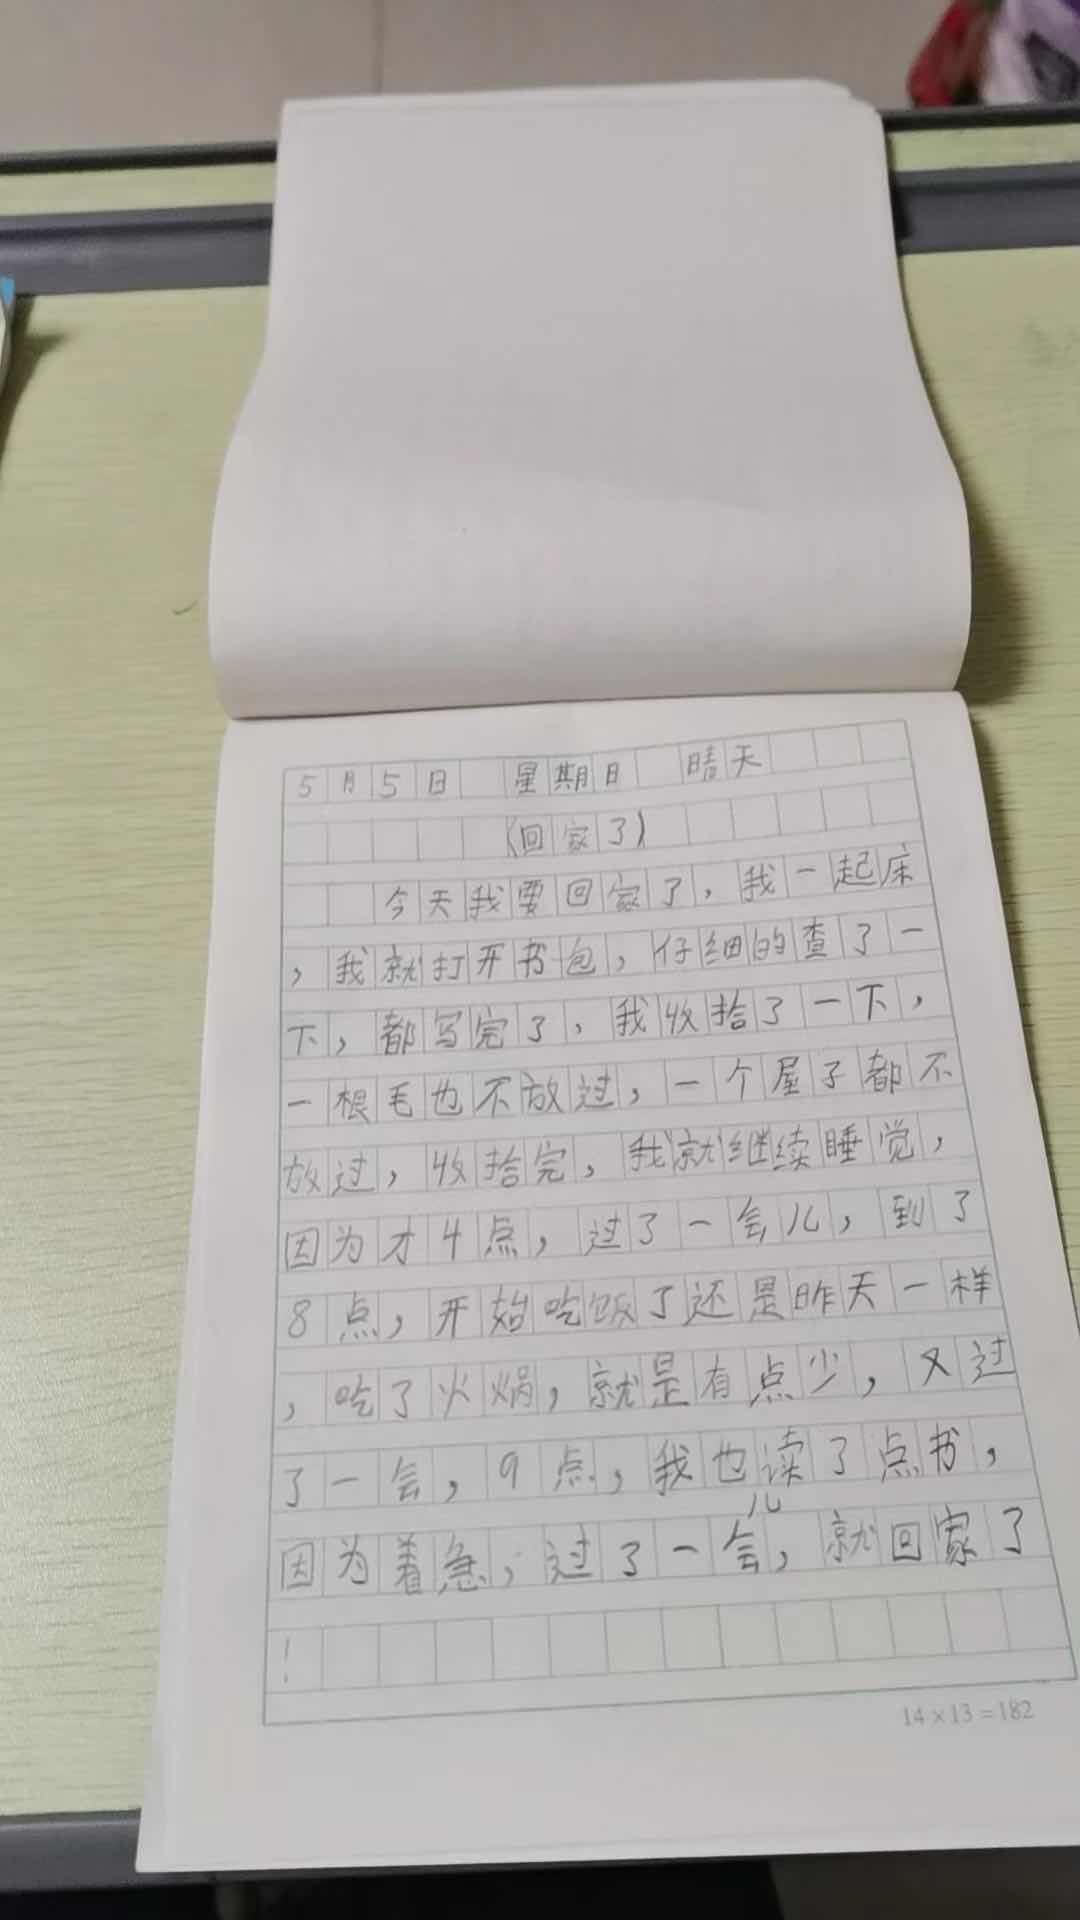 5月5日 星期日 晴天
(回家了)
今天我要回家了,我一起床
,我就打开书包,仔细的查了一
下,都写完了,我收拾了一下,
一根毛也不放过,一个屋子都不
放过,收拾完,我就继续睡觉,
因为才4点,过了一会儿,到了
8点,开始吃饭了还是昨天一样
,吃了火焗,就是有点少,又过
了一会,9点,我也读了点书,
因为着急,过了一会儿,就回家了
!
14×13=182